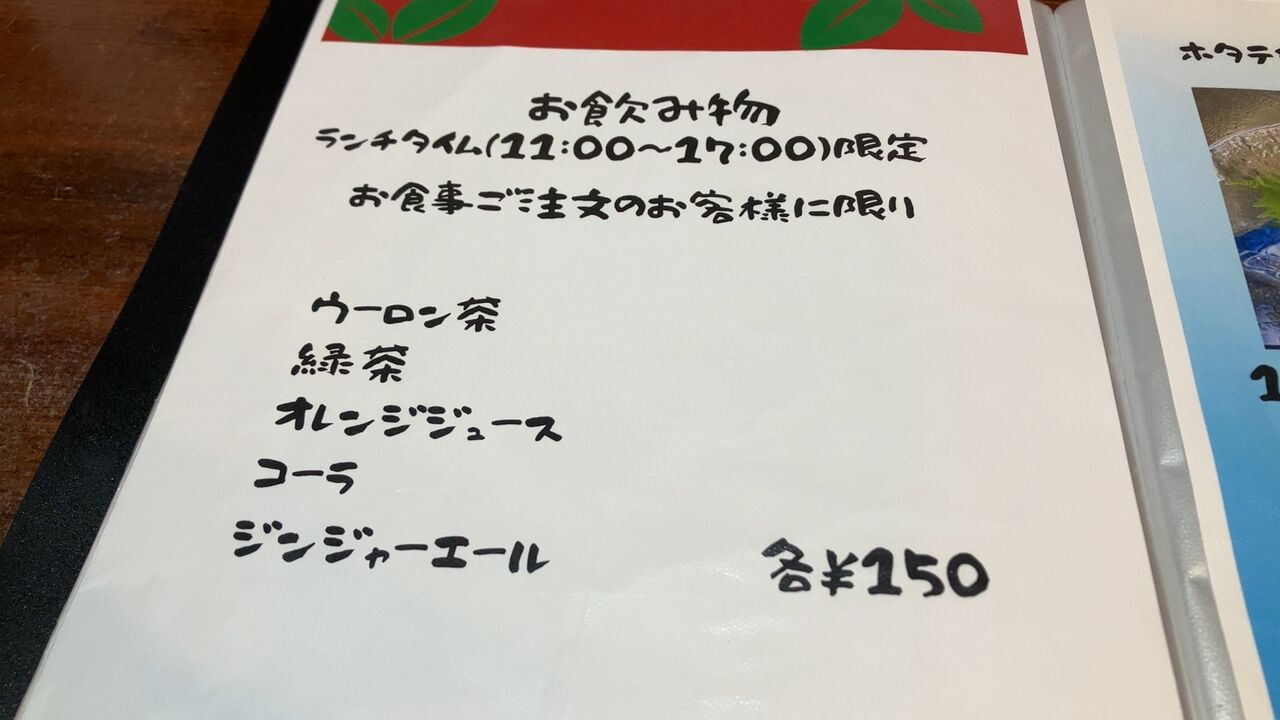 お飲み物
ランチタイム(11:00〜17:00)限定
お食事ご注文のお客様に限り
ウーロン茶
緑茶
オレンジジュース
コーラ
ジンジャーエール
各¥150
ホタテ
1